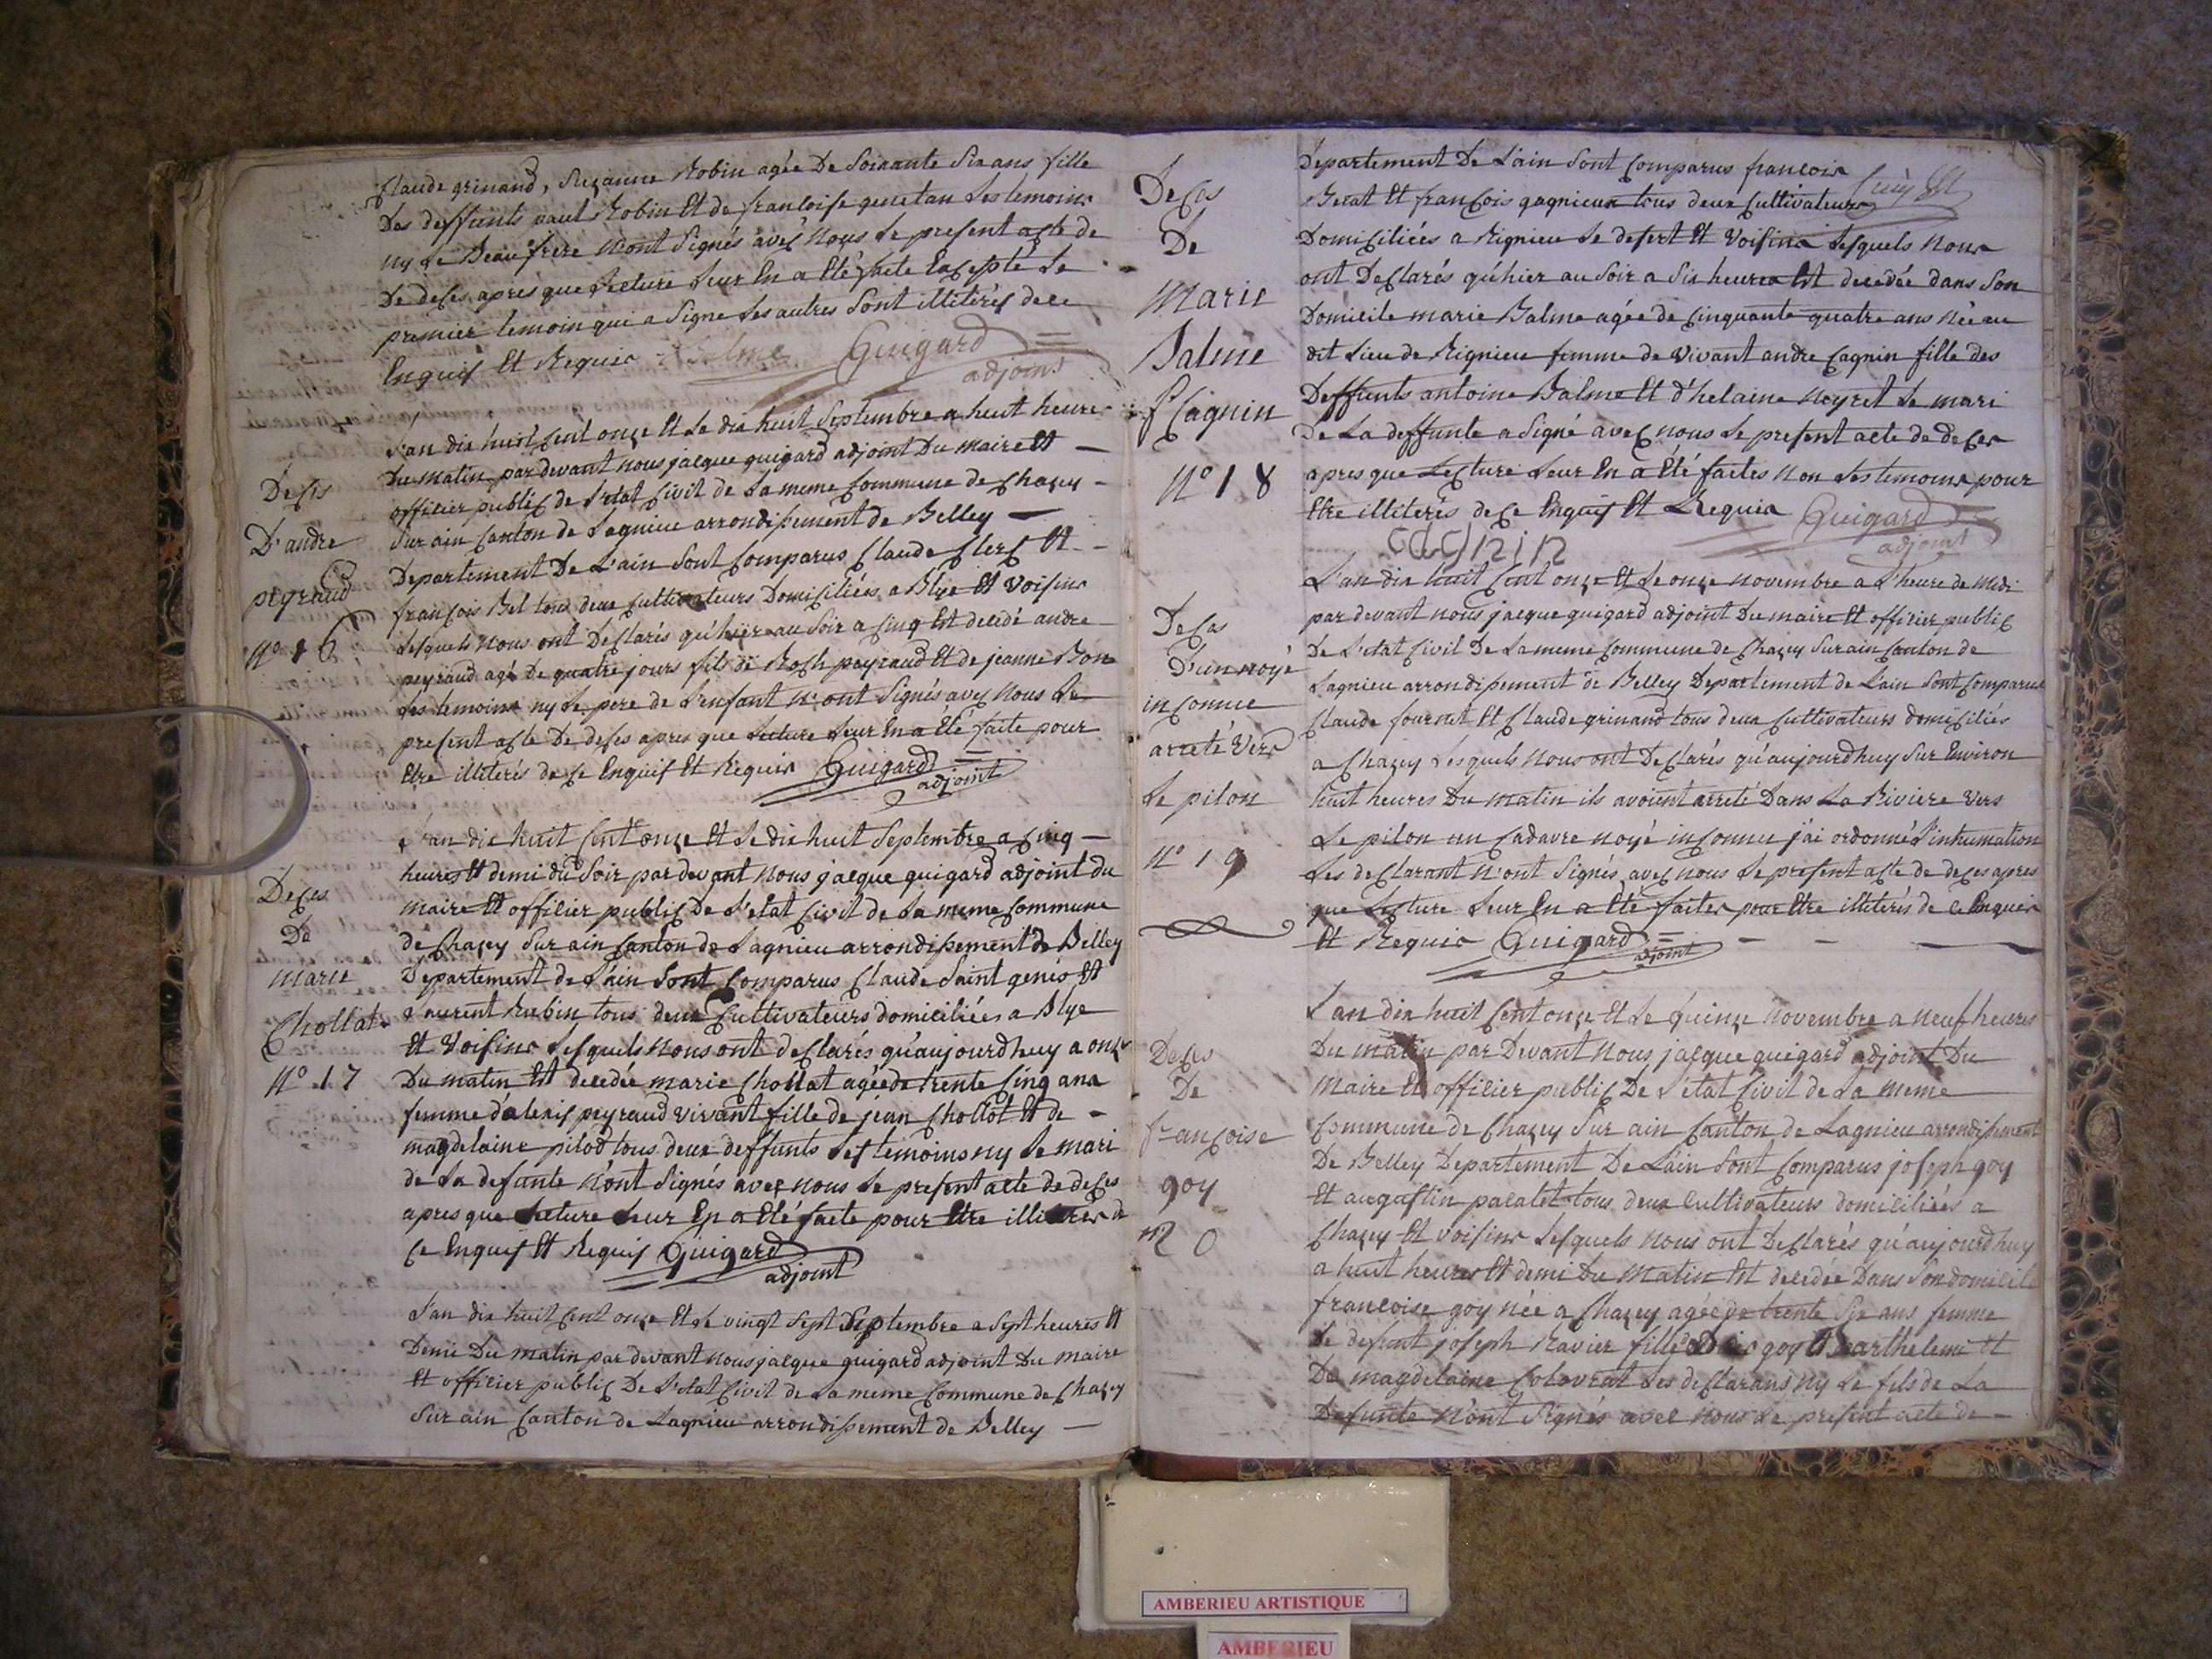 Claude grinand, Suzanne Robin agée De Soixante Six ans fille
Des deffunts paul Robin Et de francoise genetan Les temoins
ny Le Beau frere N'ont Signés avec Nous Le present acte de
De deces apres que Lecture Leur En a Eté faite Excepté Le
premier temoin qui a Signe Les autres Sont illiterés de ce
Enquis Et Requis Balme Guigard
adjoint
L'an dix huit Cent onze Et Le dix huit Septembre a huit heure
Du matin par devant nous jacque guigard adjoint Du maire Et
officier public de L'etat Civil de La meme Commune de Chazey
Sur ain Canton de Lagnieu arrondissement de Belley
Departement De L'ain Sont Comparus Claude Clerc Et
francois Bel tous deux Cultivateurs Domiciliées a Blye Et Voisins
Lesquels Nous ont Declarés qu'hiere au Soir a Cinq Est decedé andre
peyraud agé De quatre jours fils de Roch peyraud Et de jeanne Bon
Les temoins ny Le pere de L'enfant N'ont Signés avec Nous Le
present acte De deces apres que Lecture Leur En a Eté faite pour
Etre illiterés de ce Enquis Et Requis Guigard
adjoint
Deces
D'andre
peyraud
N° 16
L'an dix huit Cent onze Et Le dix huit Septembre a Cinq
heures Et demi du Soir par devant Nous jacque guigard adjoint du
maire Et officier public De L'etat Civil de La meme Commune
de Chazey Sur ain Canton de Lagnieu arrondissement de Belley
Departement de L'ain Sont Comparus Claude Saint genis Et
Laurent Rubin tous deux Cultivateurs domiciliées a Blye
Et Voisins Lesquels Nous ont declarés qu'aujourdhuy a onze
Du matin Est decedée marie Chollat agée de trente Cinq ans
femme d'alexis peyraud vivant fille de jean Chollot Et de
magdelaine pilod tous deux deffunts Les temoins ny Le mari
de La defunte N'ont Signés avec nous Le present acte de deces
apres que Lecture Leur En a Eté faite pour Etre illiterés de
Ce Enquis Et Requis Guigard
adjoint
Deces
De
Marie
Chollat
N° 17
L'an dix huit Cent onze Et Le vingt Sept Septembre a Sept heures Et
Demie Du matin par devant nous jacque guigard adjoint Du maire
Et officier public De L'etat Civil de La meme Commune de Chazey
Sur ain Canton de Lagnieu arrondissement de Belley
Departement De L'ain Sont Comparus francois
Berat Et francois gagnieux tous deux Cultivateurs
Domiciliées a Rignieu Le desert Et Voisins Lesquels Nous
ont Declarés qu'hier au Soir a Six heures Est decedée dans Son
Domicile marie Balme agée de Cinquante quatre ans Née au
dit Lieu de Rignieu femme de Vivant andre Cagnin fille des
Deffunts antoine Balme Et d'helaine Neyret Le mari
De La deffunte a Signé avec nous Le present acte de deces
apres que Lecture Leur En a Eté faites Non Les temoins pour
Etre illiterés de ce Enquis Et Requis Guigard
adjoint
Deces
De
Marie
Balme
f° Cagnin
N° 18
L'an dix huit Cent onze Et Le onze Novembre a L'heure de Midi
par devant nous jacque guigard adjoint Du maire Et officier public
De L'etat Civil De La meme Commune de Chazey Sur ain Canton de
Lagnieu arrondissement de Belley Departement de L'ain Sont Comparus
Claude fournet Et Claude grinand tous deux Cultivateurs domiciliés
a Chazey Lesquels Nous ont Declarés qu'aujourdhuy Sur Environ
huit heures Du matin ils avoient arreté Dans La Riviere Vers
Le pilon un Cadavre noyé inconnu j'ai ordonné L'inhumation
Les declarant N'ont Signés avec nous Le present acte de deces apres
que Lecture Leur En a Eté faites pour Etre illiterés de ce Enquis
Et Requis Guigard
adjoint
Deces
D'un noyé
inconnue
arreté Vers
Le pilon
N° 19
L'an dix huit Cent onze Et Le quinze Novembre a Neuf heures
Du matin par Devant Nous jacque guigard adjoint Du
Maire Et officier public De L'etat Civil de La meme
Commune de Chazey Sur ain Canton de Lagnieu arrondissement
De Belley Departement De L'ain Sont Comparus joseph goy
Et augustin palatet tous deux Cultivateurs domiciliées a
Chazey Et Voisins Lesquels Nous ont Declarés qu'aujourdhuy
a huit heures Et demi Du Matin Est decedée Dans Son domicile
francoise goy née a Chazey agée de trente Six ans femme
De defunt joseph Ravier fille goy Barthelemi Et
De magdelaine Colovrat Les declarans ny Le fils de La
Defunte N'ont Signés avec Nous Le present acte de
Deces
De
francoise
goy
AMBERIEU ARTISTIQUE
AMBERIEU